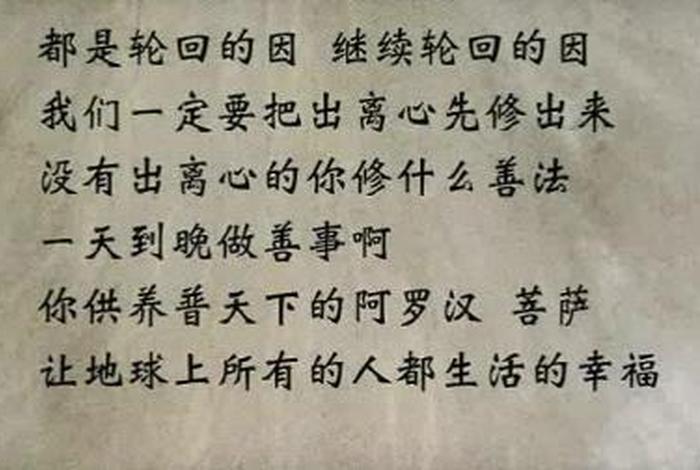 都是轮回的因 继续轮回的因
我们一定要把出离心先修出来
没有出离心的你修什么善法
一天到晚做善事啊
你供养普天下的阿罗汉 菩萨
让地球上所有的人都生活的幸福